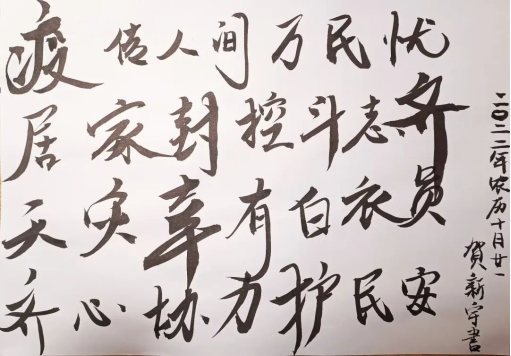 疫传人间万民忧
居家封控斗志齐
天灾幸有白衣员
齐心协力护民安
二〇二二年农历十月廿一
賀新宇書